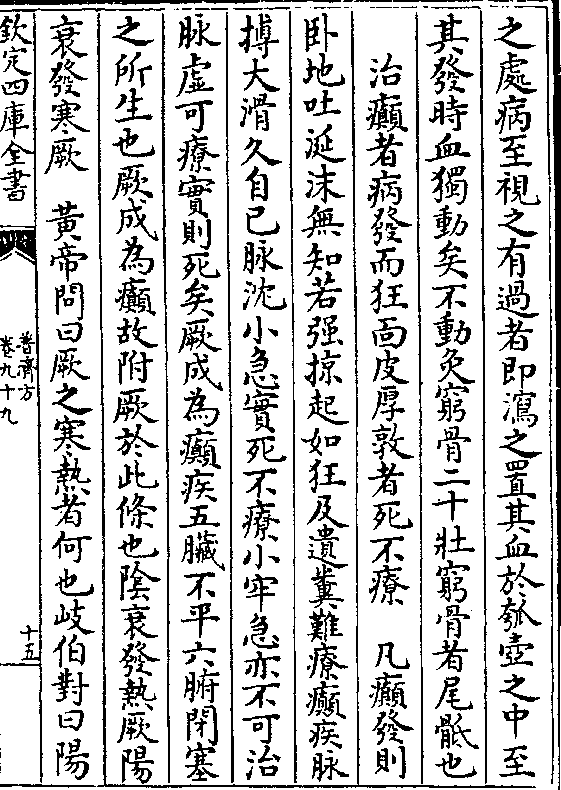 之處病至視之有過者即瀉之置其血於瓠壺之中至
其發時血獨動矣不動灸窮骨二十壯窮骨者尾骶也
治癲者病發而狂面皮厚敦者死不療　凡癲發則
卧地吐涎沫無知若强掠起如狂及遺糞難療癲疾脉
搏大滑久自已脉沈小急實死不療小牢急亦不可治
脉虛可療實則死矣厥成為癲疾五臟不平六腑閉塞
之所生也厥成為癲故附厥於此條也陰衰發熱厥陽
衰發寒厥　黃帝問曰厥之寒熱者何也岐伯對曰陽
欽定四庫全書
普濟方
卷九十九
十五